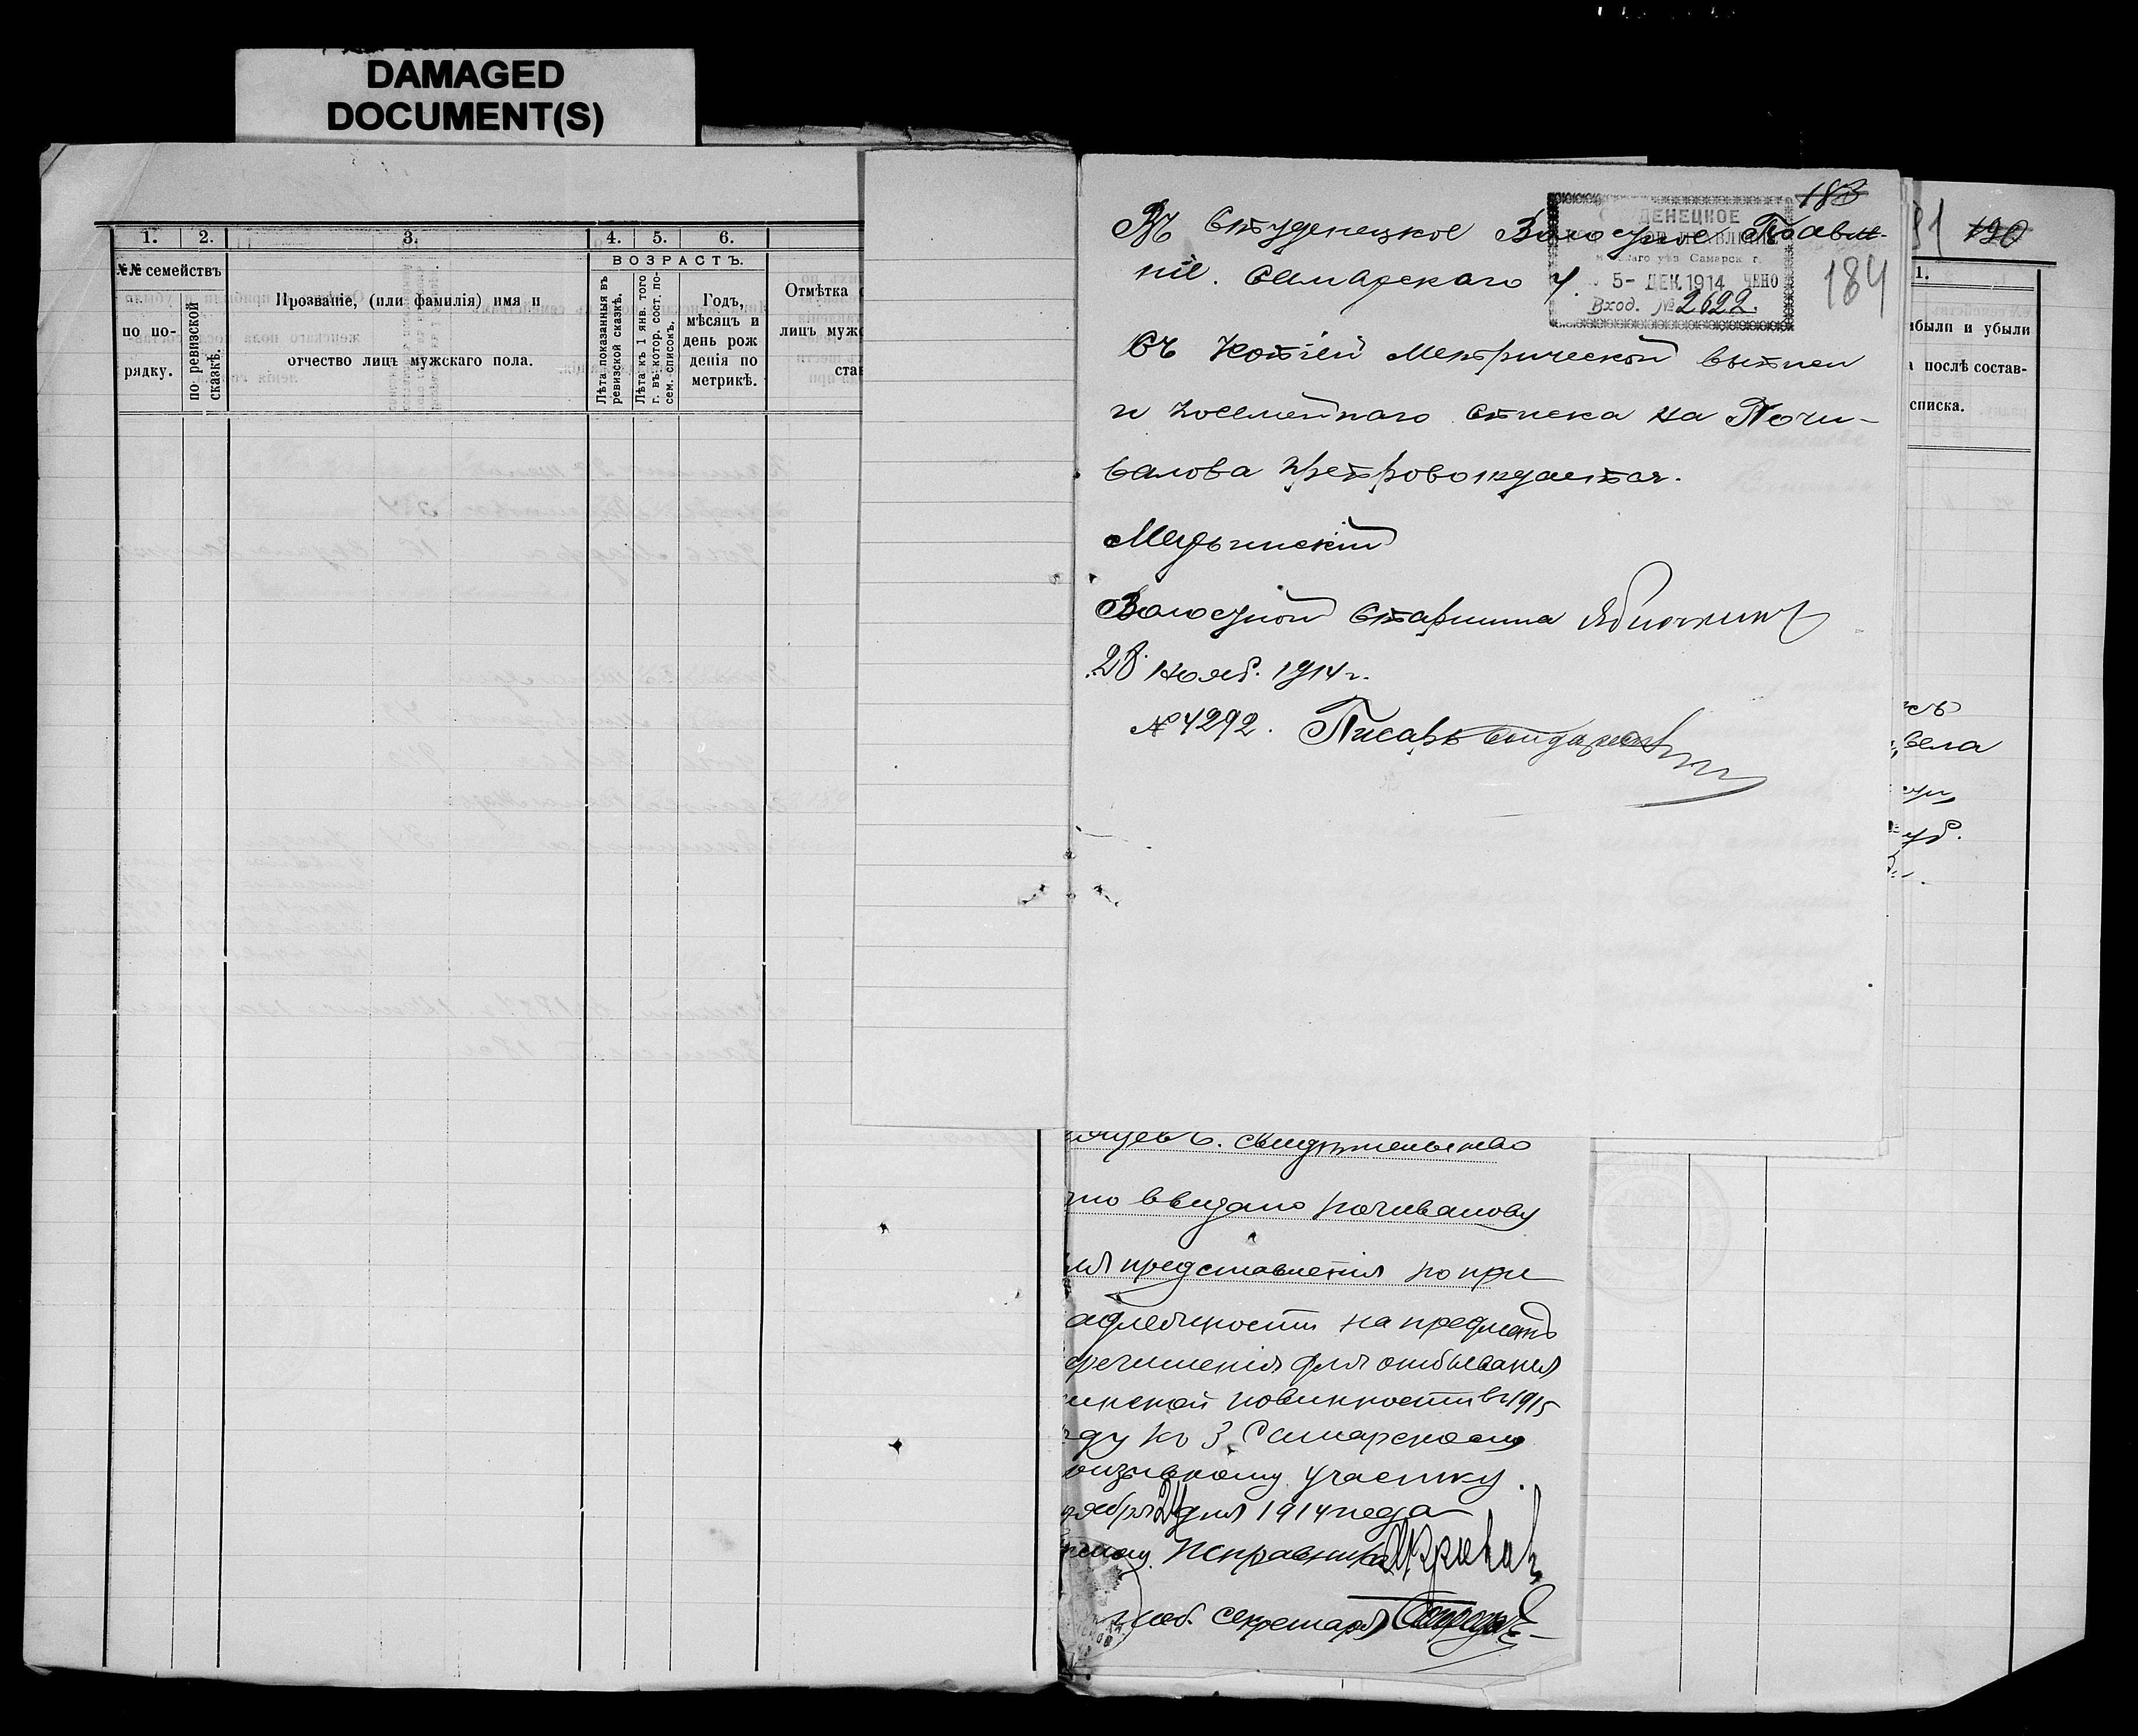 DAMAGED
DOCUMENT(S)
1. 2. 3. 4. 5. 6.
№№ семействъ
по по-
рядку.
по ревизской
сказкѣ.
Прозваніе, (или фамилія) имя и
отчество лицъ мужскаго пола.
ВОЗРАСТЪ.
Лѣта показанныя въ
ревизской сказкѣ.
Лѣта къ 1 янв. того
г. въ котор. сост. по-
сем. списокъ.
Годъ,
мѣсяцъ и
день рож
денія по
метрикѣ.
Отмѣтка
лицъ муж
ста
183
184
ДЕНЕЦКОЕ
аго уѣз. Самарск г.
5- ДЕК. 1914 ЧЕНО
Вход. № 2692.
Въ Студенецкое Волостное Правле-
ніе. Самарскаго у.
Съ копіей метрической выписи
и посемейнаго списка на Почи-
валова препровождается.
Медынскій
Волостной Старшина
28 Нояб. 1914 г.
№ 4292. Писарь
91 190
1.
были и убыли
послѣ состав-
списка.
сь
вела
уб.
свидѣтельство
то выдано Почивалову
ля представленія по при
адлежности на предметъ
речисленія для отбыванія
инской повинности въ 1915
ду къ 3 Самарскому
ризывному участку.
оября 24 дня 1914 года
Исправника
Секретаря